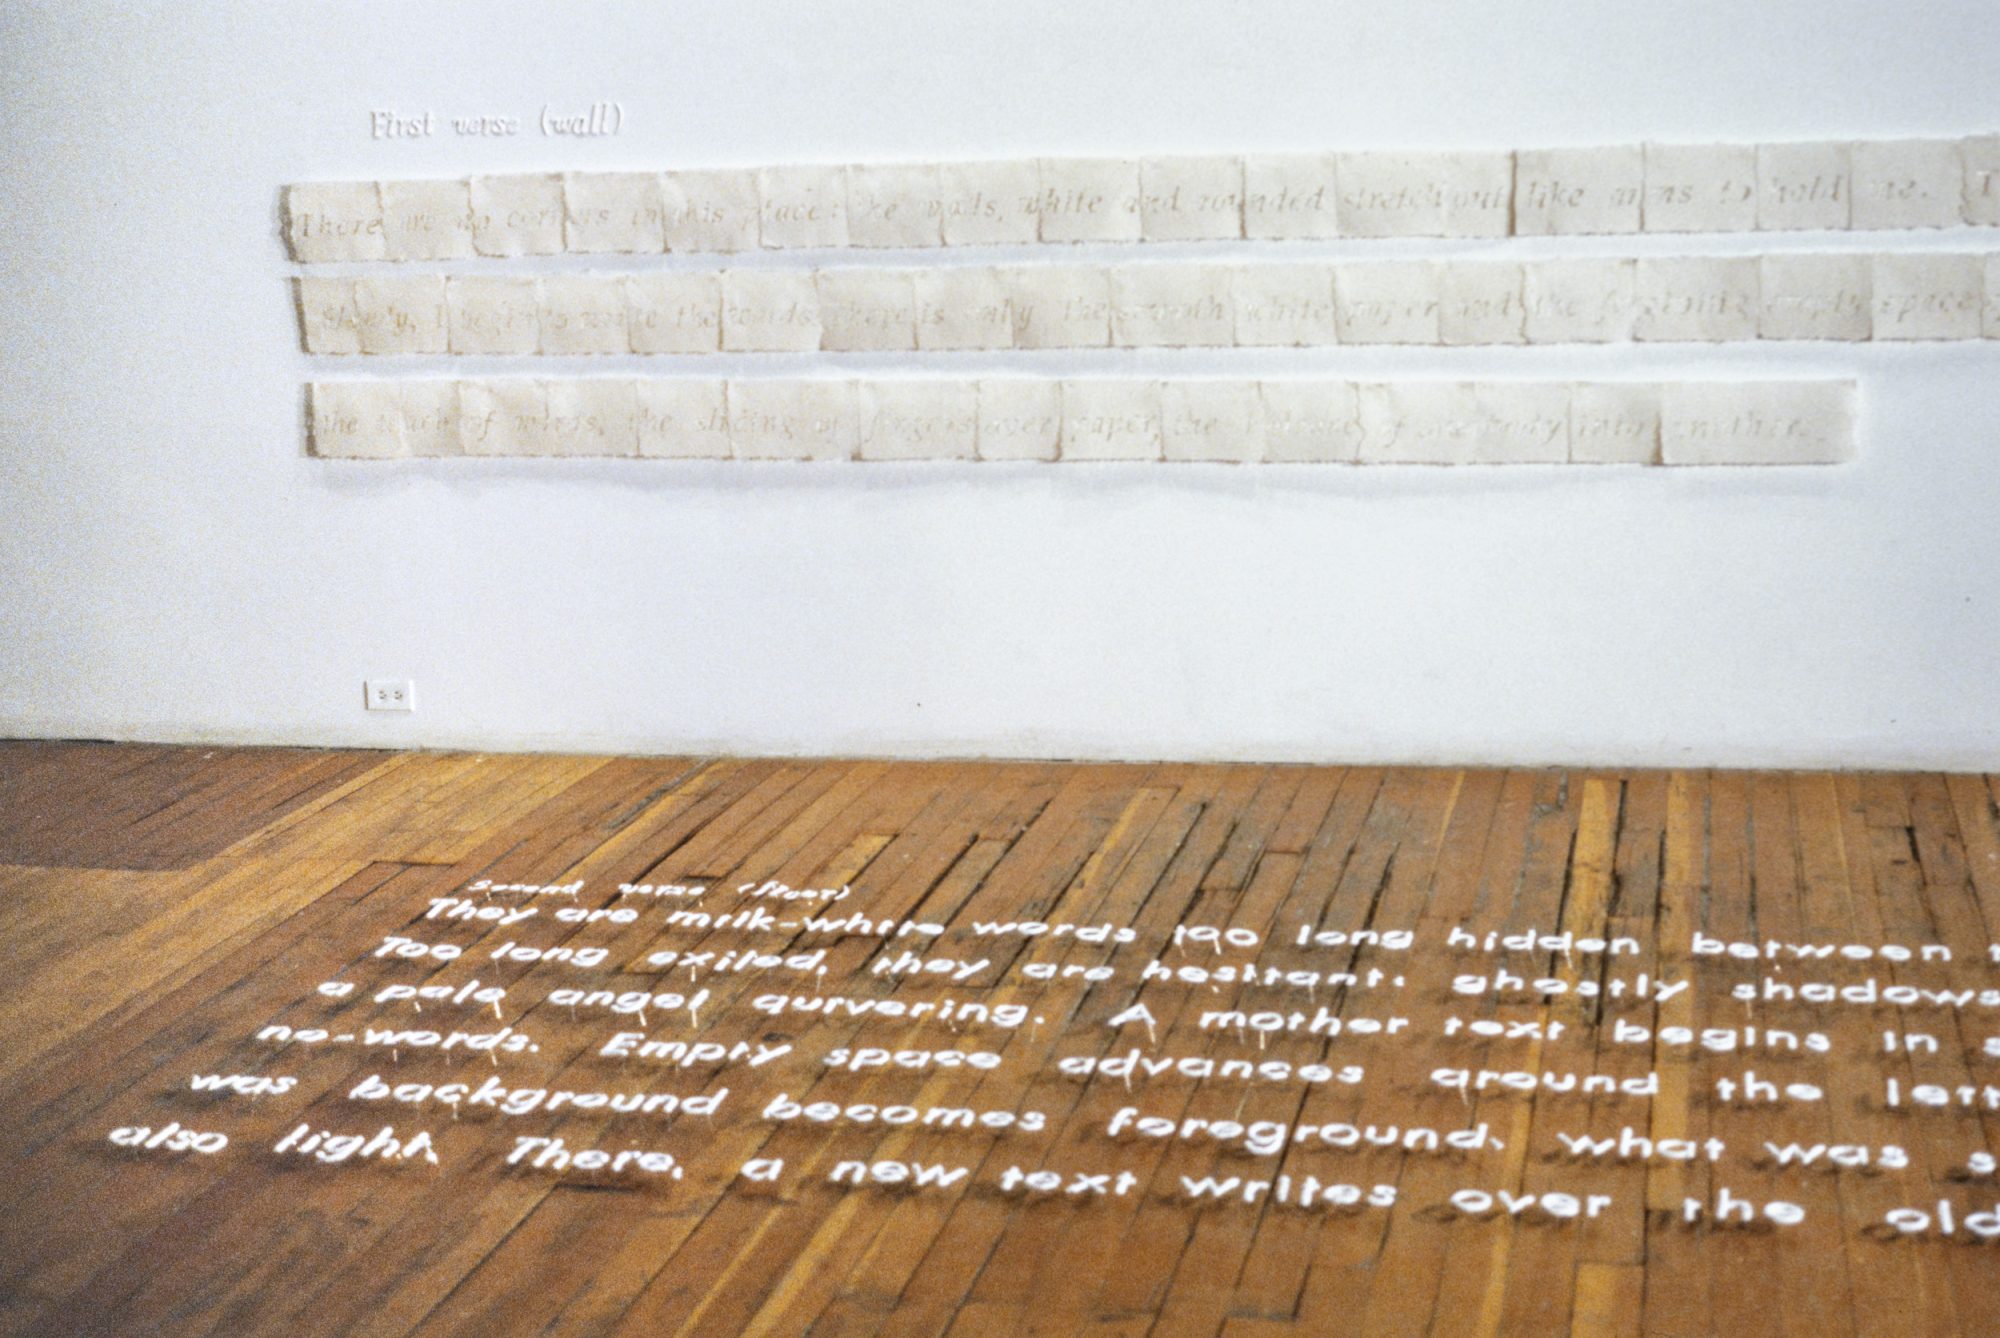 First verse (wall)
There are no corners in this place: the walls, white and rounded stretch out like arms to hold me.
Slowly, I begin to write the words. There is only the smooth white paper and the empty space
the touch of words, the sliding of fingers over paper, the of one body into another.
Second verse (floor)
They are milk-white words too long hidden between
Too long exiled, they are hesitant: ghostly shadows
a pale angel quivering. A mother text begins in
no-words. Empty space advances around the
was background becomes foreground, what was
also light. There, a new text writes over the old